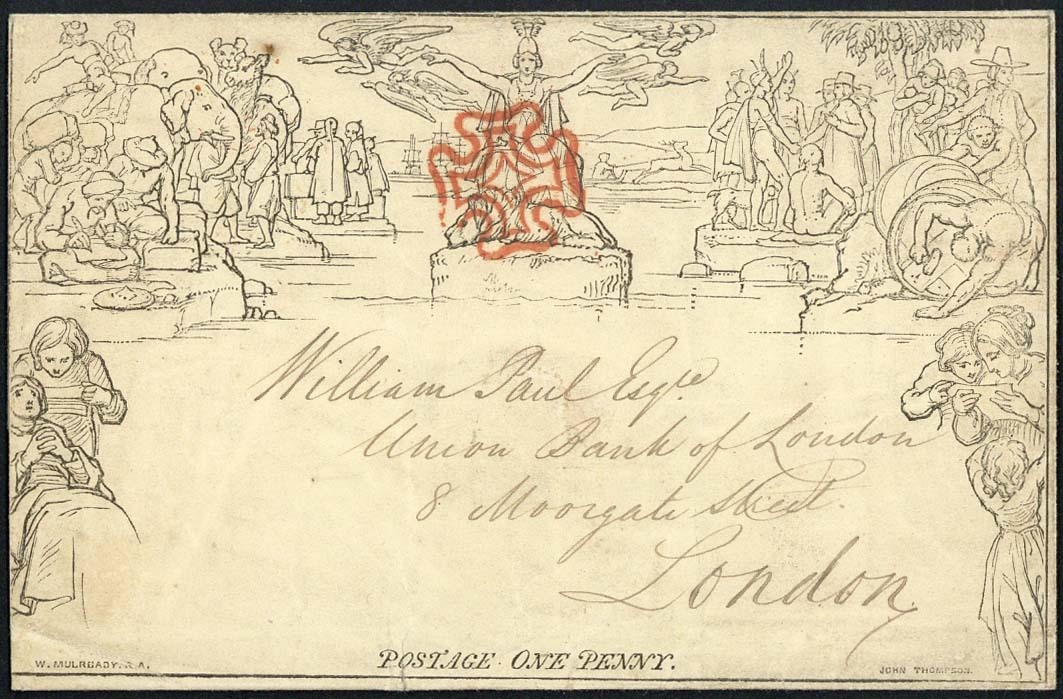 William Paul Esqre
Union Bank of London
8 Moorgate Street.
London
POSTAGE ONE PENNY.
W. MULREADY. R.A.
JOHN THOMPSON.